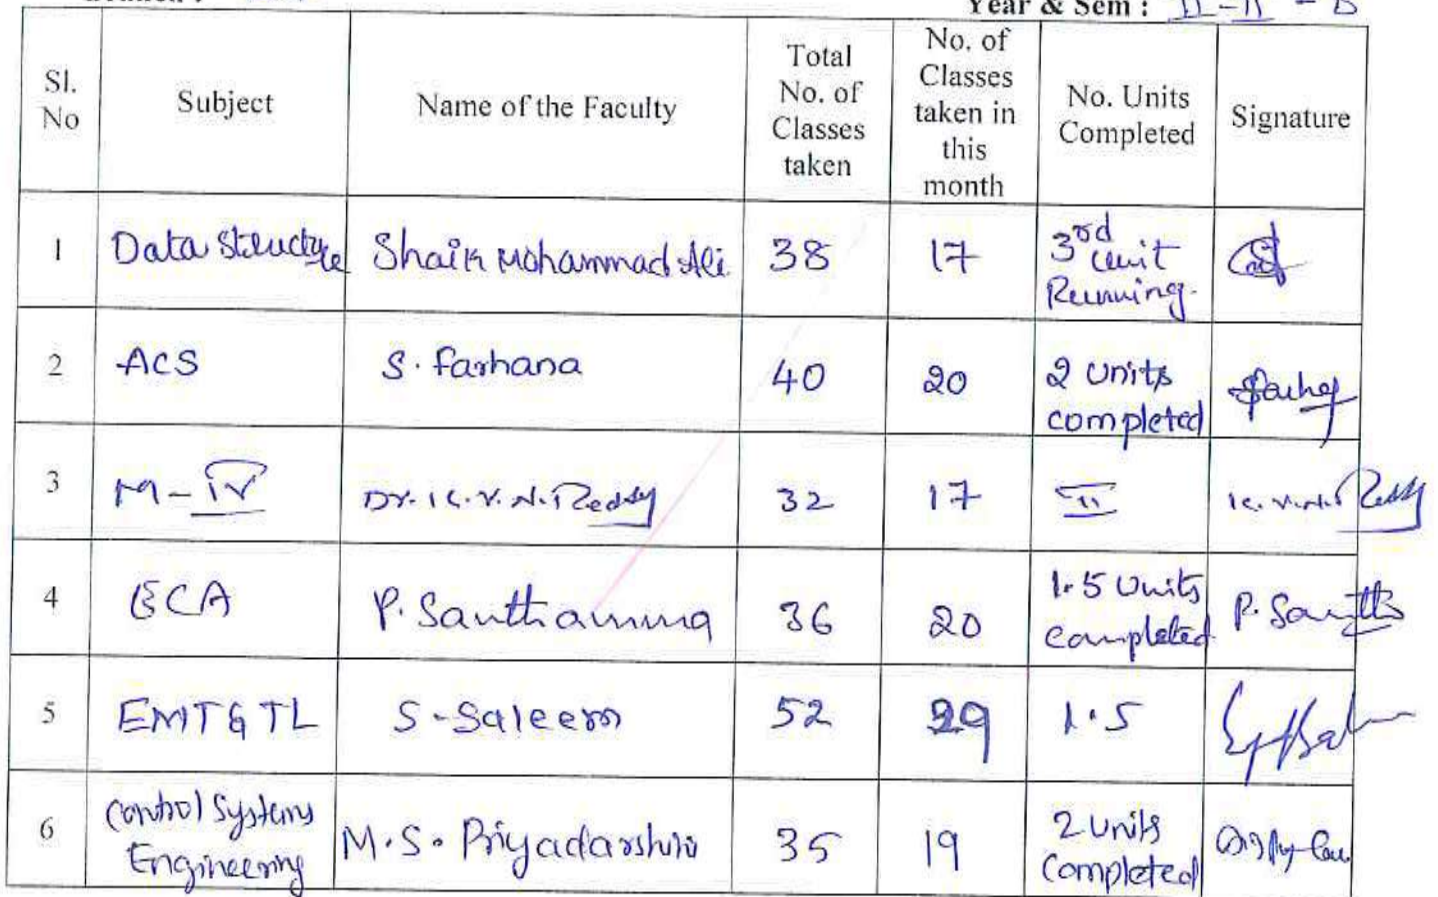 Year & Sem : II-II - B
Sl. No Subject Name of the Faculty Total No. of Classes taken No. of Classes taken in this month No. Units Completed Signature
1 Data Structure Shaik Mohammad Ali 38 17 3rd unit Running.
2 ACS S. Farhana 40 20 2 units completed
3 M-IV Dr. K.V.N. Reddy 32 17 II K.V.N. Reddy
4 ECA P. Santhamma 36 20 1.5 Units completed
5 EMT&TL S-Saleem 52 29 1.5
6 Control Systems Engineering M.S. Priyadarshini 35 19 2 units Completed